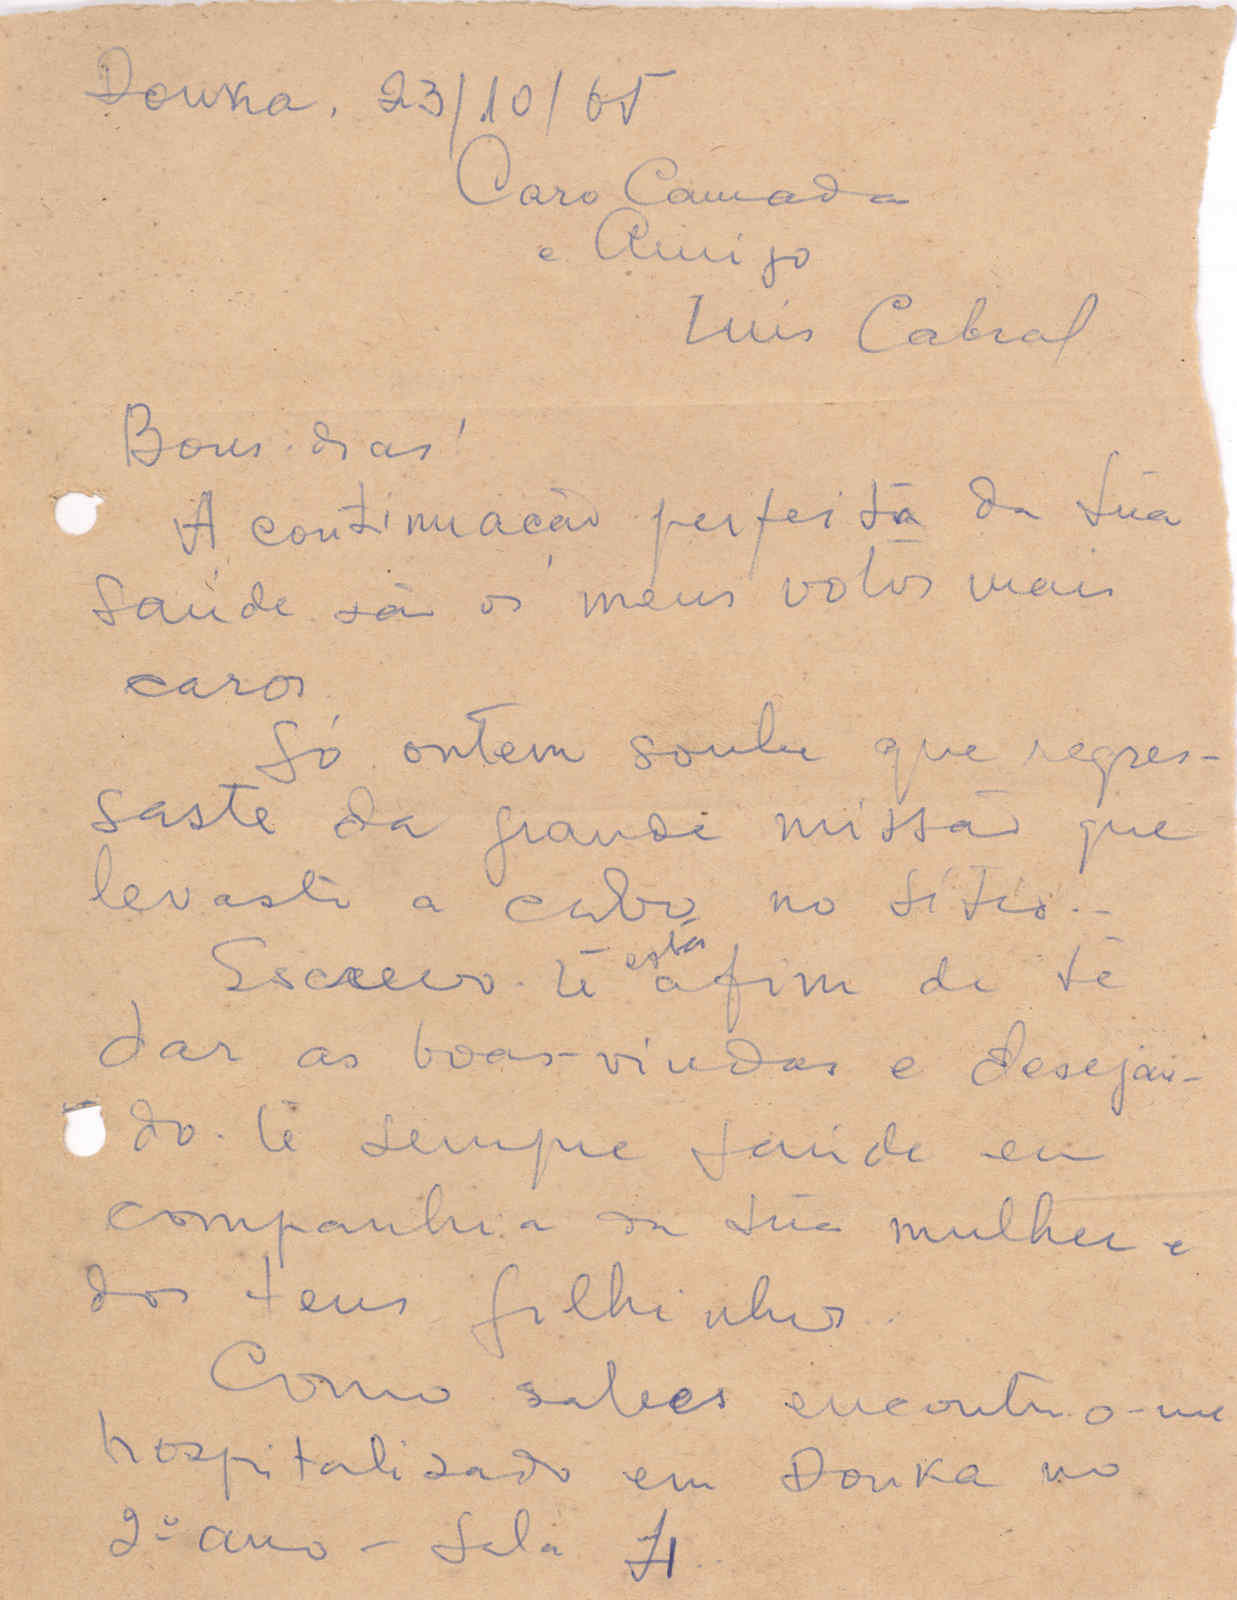 Donka, 23/10/65
Caro Camada
e Amigo
Luis Cabral
Bons dias!
A continuação perfeita da túa
saúde são os meus votos mais
caros.
Só ontem soube que regres-
saste da grande missão que
levaste a cabo no sítio..
Escrevo-te esta afim de te
dar as boas-vindas e desejan-
do-te sempre saúde em
companhia da túa mulher e
dos teus filhinhos.
Como sabes encontro-me
hospitalizado em Donka no
2º ano - Sala